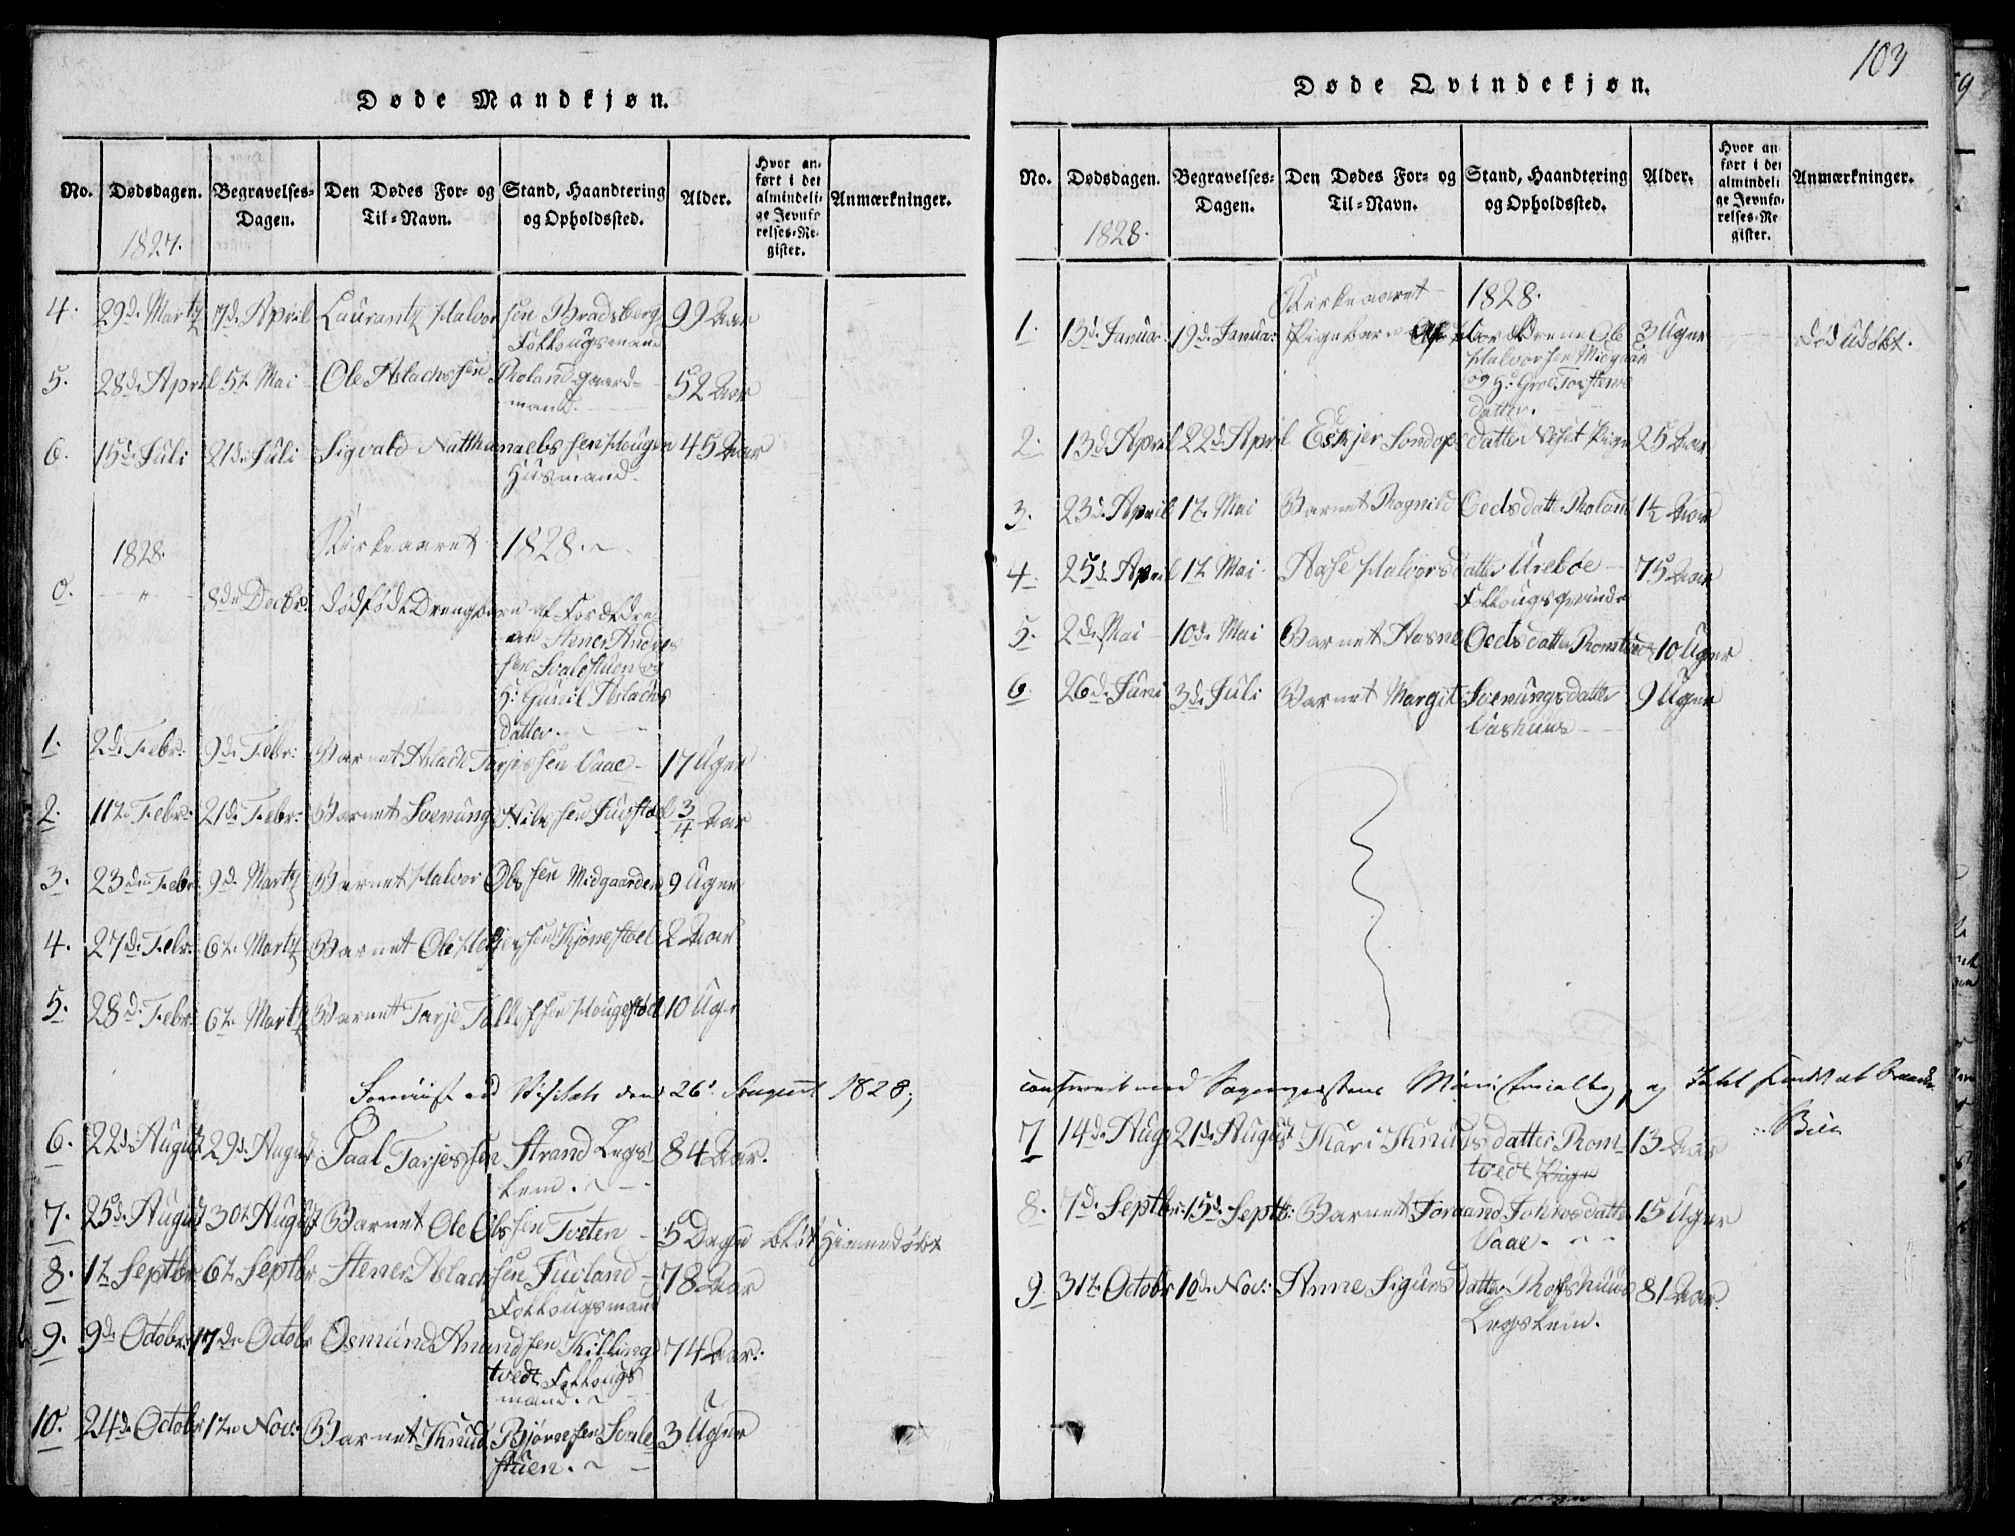 Døde Mandkjøn.
No. Dødsdagen. Begravelses-Dagen. Den Dødes For- og Til-Navn. Stand, Haandtering og Opholdssted. Alder. Hvor anført i det almindelige Jevnførelses-Register. Anmærkninger.
1827.
4. 29d. Martz 17d. April Laurantz Halvorsen Bradsberg 99 Aar
Follougsmand
5. 28d. April 5t. Mai Ole Aslachssen Roland gaard- 52 Aar
mand.
6. 15d. Juli 21d. Juli Sigvald Natthanaelssen Hougen 45 Aar
Huusmand.
1828. Kirkeaaret 1828.
0. " 8de Decbr. dødfødt Drengebarn af Forældre-
ne Stener Anders
sen Svalestuen og
H: Gunil Aslachs
datter.
1. 2d. Febr: 9d. Febr: Barnet Aslach Tarjessen Vaae 17 Uger
2. 11t. Febr: 21d. Febr: Barnet Svenung Nilssen Juvstoel 3/4 Aar
3. 23de Febr. 9d. Martz Barnet Halvor Olssen Midgaarden 9 Uger
4. 27d. Febr: 6t. Martz Barnet Ole Kjønestoel 2 Aar
5. 28d. Febr: 6t. Martz Barnet Tarje Tallefssen Hougestoel 10 Uger
Foreviist ved Visitats den 26. August 1828;
6. 22d. August 29d. August Paal Tarjessen Strand Legs- 84 Aar.
lem.
7. 25d. August 30t. August Barnet Ole Olssen Tveten 5 Dage blot Hiemedøbt
8. 1t. Septbr. 6t. Septbr. Stener Aslachssen Juvland 78 Aar
Follougsmand
9. 9d. Octobr: 17de Octobr Osmund Amundsen Killing 74 Aar.
tvedt Follougs
mand.
10. 24d. Octobr 1te Nov: Barnet Knud Bjørnssen Svale 3 Uger
stuen.
103
Døde Qvindekjøn.
No. Dødsdagen. Begravelses-Dagen. Den Dødes For- og Til-Navn. Stand, Haandtering og Opholdssted. Alder. Hvor anført i det almindelige Jevnførelses-Register. Anmærkninger.
1828.
Kirkeaaret 1828.
1. 13d. Janua. 19d. Janua: Pigebarn af Forældrene Ole 3 Uger død udøbt.
Halvorsen Midgaar
og H: Groe Torstens
datter.
2. 13d. April 22d. April datter Pige 25 Aar
3. 23d. April 1t. Mai Barnet Ragnild Oedsdatter Roland 1½ Aar
4. 25d. April 1t. Mai Aase Halvorsdatter Ureboe 75 Aar
Follougsqvinde
5. 2d. Mai 10de Mai Barnet Aasne Oedsdatter Romtvedt 10 Uger
6. 26d. Juni 3d. Juli Barnet Margit Svenungsdatter 9 Uger
Vashuus
confereret med og Intet fundet at
Bull
7 14d. Aug. 21d. August Kari Knudsdatter Rom- 13 Aar
tvedt Pige
8. 7d. Septbr: 15d. Septb: Barnet Joraand Johnsdatter 15 Uger
Vaae.
9. 31t. Octobr 10de Nov: Anne Sigursdatter 81 Aar.
Legslem.